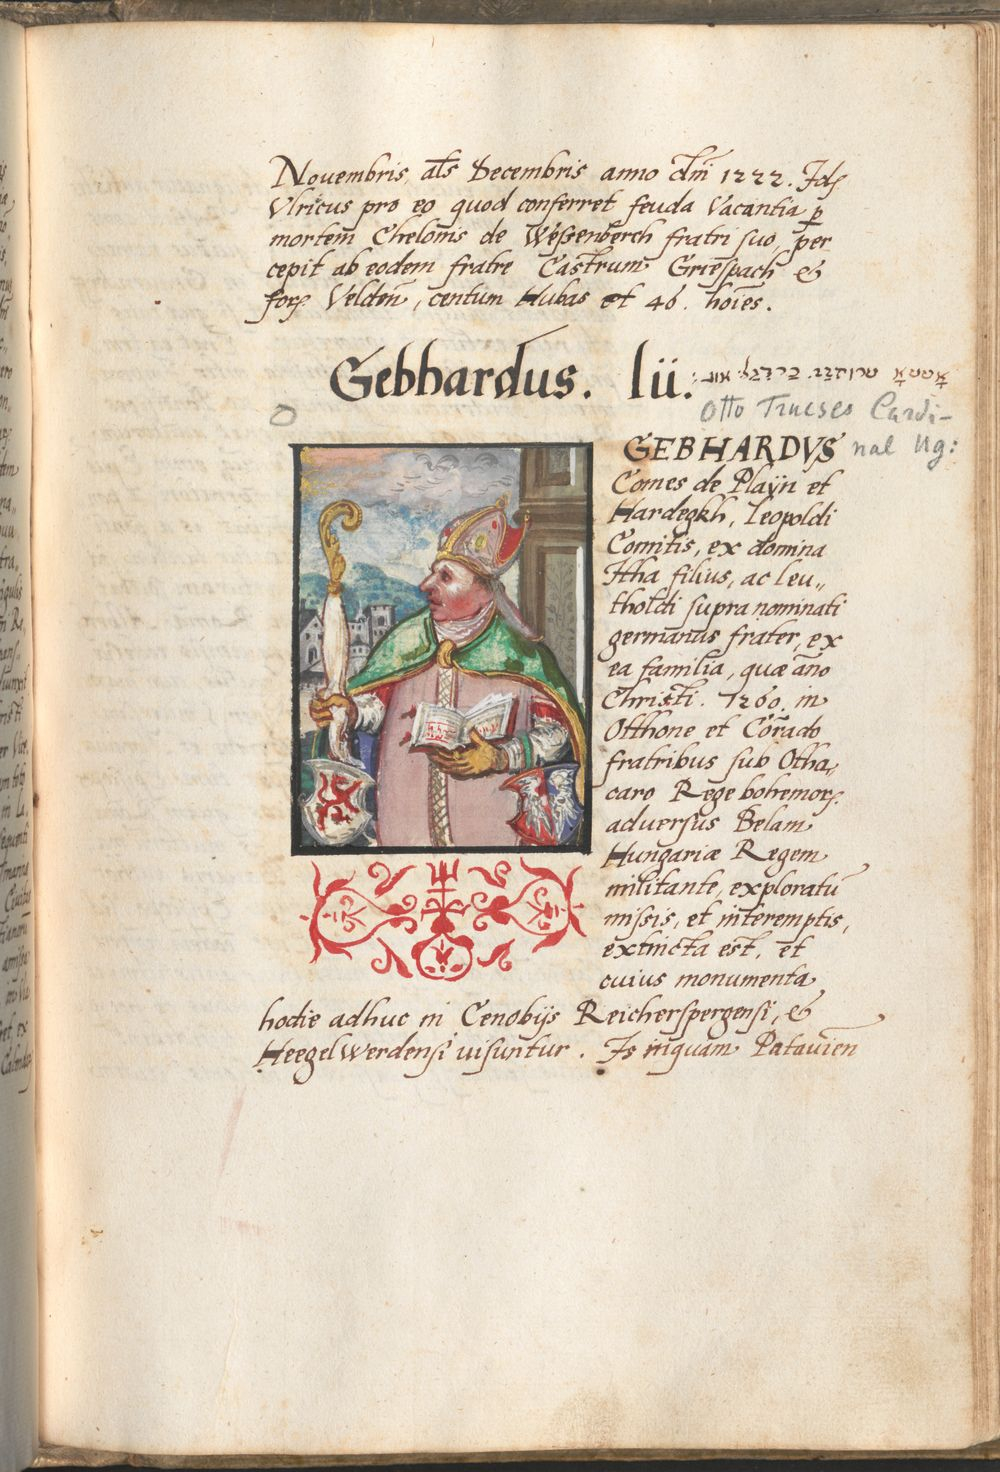 Novembris, als Decembris anno dm̃ 1222. Idꝫ
Vlricus pro eo quod conferret feuda Vacantia ꝑ
mortem Chelonis de Weſſenberch fratri ſuo, per
cepit ab eodem fratre Castrum Grieſpach &
Velden̄, centum Hubas et 46. hoïes.
Gebhardus. lii.
Otto Truchses Cardi-
nal Ug:
GEBHARDVS
Comes de Playn et
Hardegkh, Leopoldi
Comitis, ex domina
Itha filius, ac leu„
tholdi ſupra nominati
germanus frater, ex
ea familia, quæ año
Christi. 1260. in
Otthone et Coñrado
fratribus ſub Otha,
caro Rege bohemorꝫ
adverſus Belam
Hungariæ Regem
militante, exploratū
miſsis, et interemptis,
extincta est, et
cuius monumenta
hodie adhuc in Cenobijs Reicherſpergenſi, &
HeegelWerdenſi uiſuntur. Is inquam Patauien̄